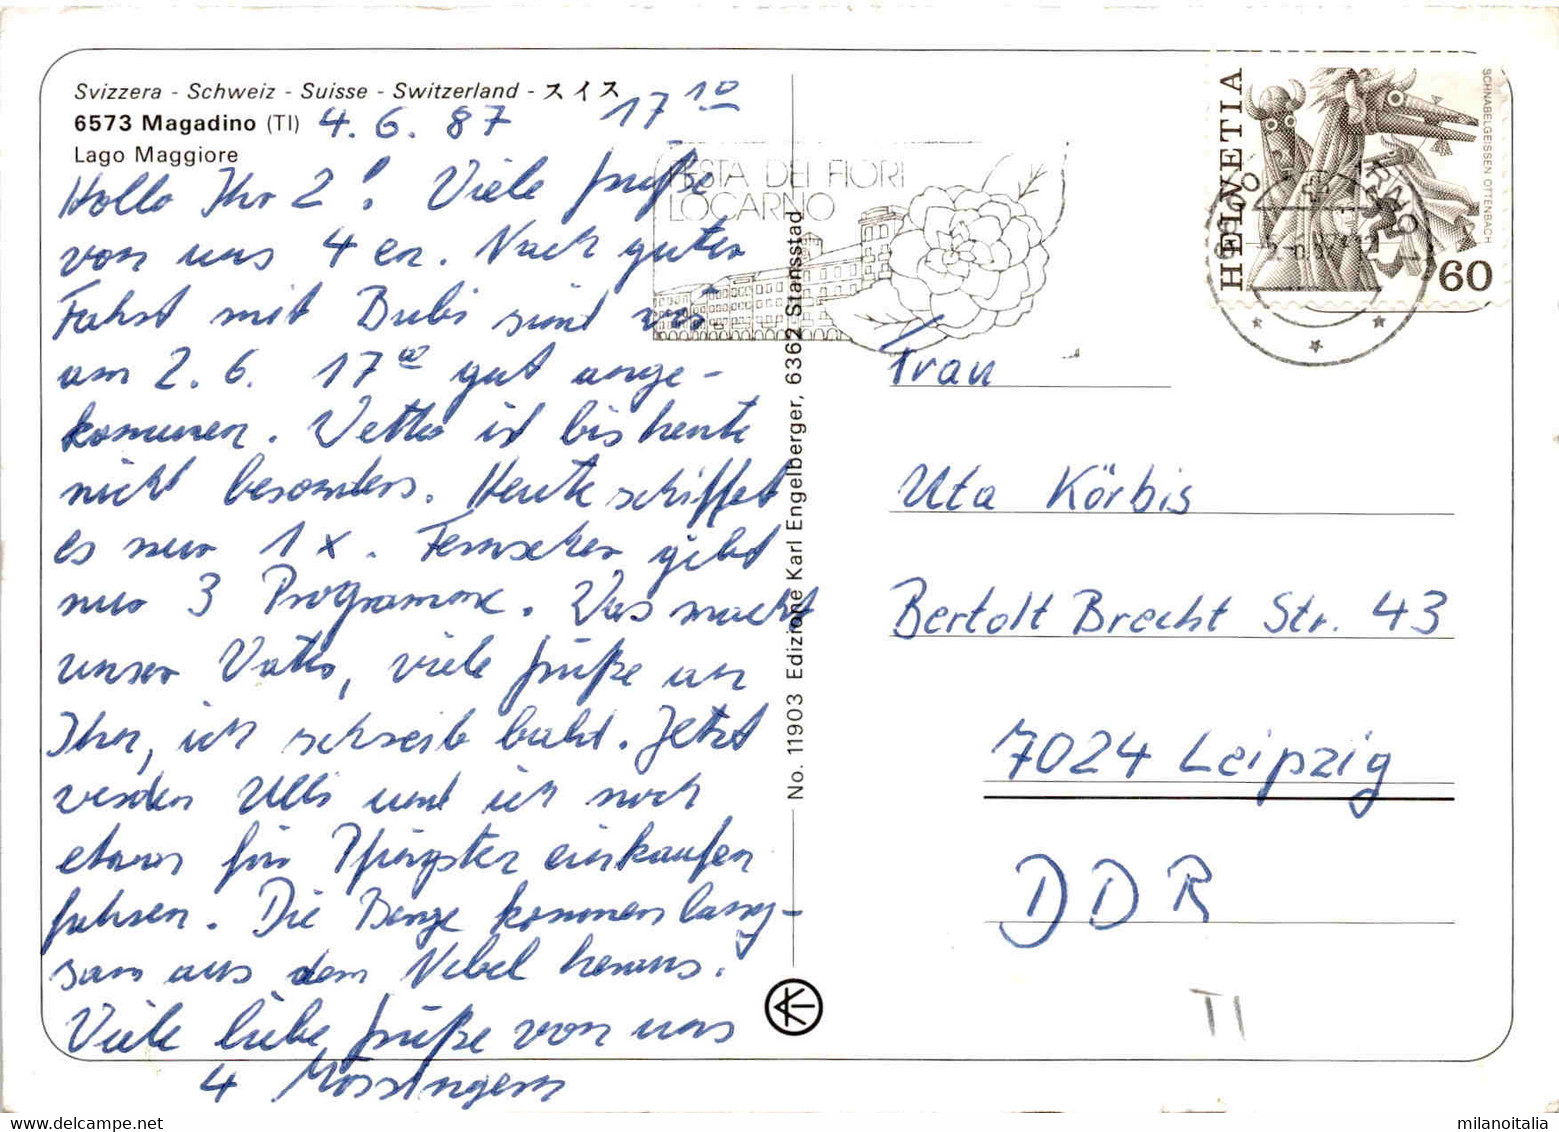 Svizzera - Schweiz - Suisse - Switzerland - スイス
6573 Magadino (TI) 4.6.87 17 10
Lago Maggiore
Hallo Ihr 2! Viele Grüße
von uns 4 en. Nach guter
Fahrt mit Bubi sind wir
am 2.6. 17 00 gut ange-
kommen. Wetter ist bis heute
nicht besonders. Heute schiffet
es nur 1 x. Fernseher gibt
nur 3 Programme. Was macht
unser Vater, viele Grüße an
Ihn, ich schreib bald. Jetzt
werden Ulli und ich noch
etwas für Pfingsten einkaufen
fahren. Die Berge kommen lang-
sam aus dem Nebel heraus.
Viele liebe Grüße von uns
4 Mössingern
No. 11903 Edizione Karl Engelberger, 6362 Stansstad
FESTA DEI FIORI
LOCARNO
HELVETIA
SCHNABELGEISSEN OTTENBACH
60
Frau
Uta Körbis
Bertolt Brecht Str. 43
7024 Leipzig
DDR
TI
www.delcampe.net
milanoitalia